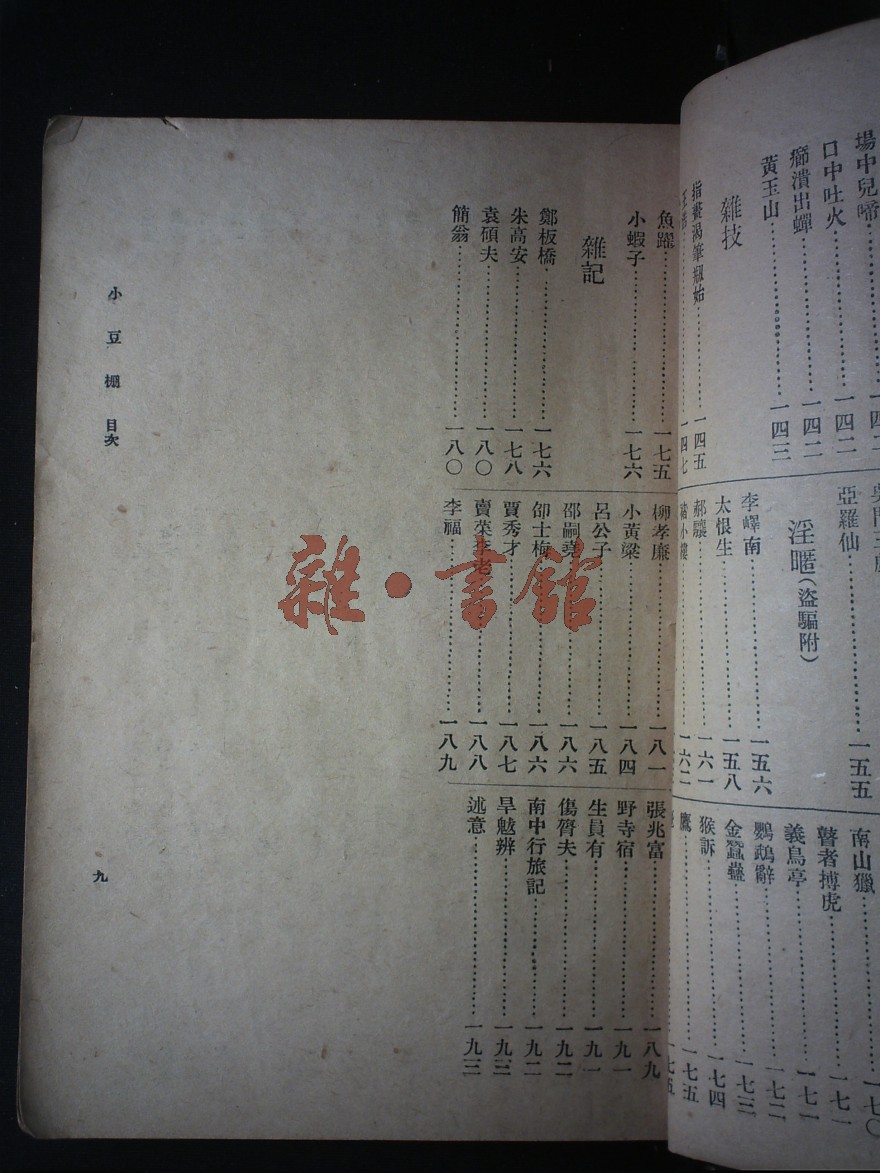 場中兒啼
口中吐火……一四二
癤潰出蟬……一四二
黃玉山……一四三
雜技
指畫渴筆烟始……一四五
一四七
亞羅仙……一五五
淫暱（盜騙附）
李嶧南……一五六
太恨生……一五八
郝驤……一六一
一六二
南山獵……一七〇
瞽者搏虎……一七一
義鳥亭……一七一
鸚鵡辭……一七二
金蠶蠱……一七三
猴訴……一七四
鷹……一七五
魚躍……一七五
小蝦子……一七六
雜記
鄭板橋……一七六
朱高安……一七八
袁碩夫……一八〇
簡翁……一八〇
柳孝廉……一八一
小黃粱……一八四
呂公子……一八五
邵嗣堯……一八六
卻士梅……一八六
賈秀才……一八七
賣菜李老……一八八
李福……一八九
張兆富……一八九
野寺宿……一九一
生員有……一九一
傷膂夫……一九二
南中行旅記……一九二
旱魃辨……一九三
述意……一九三
小豆棚 目次
九
雜·書館